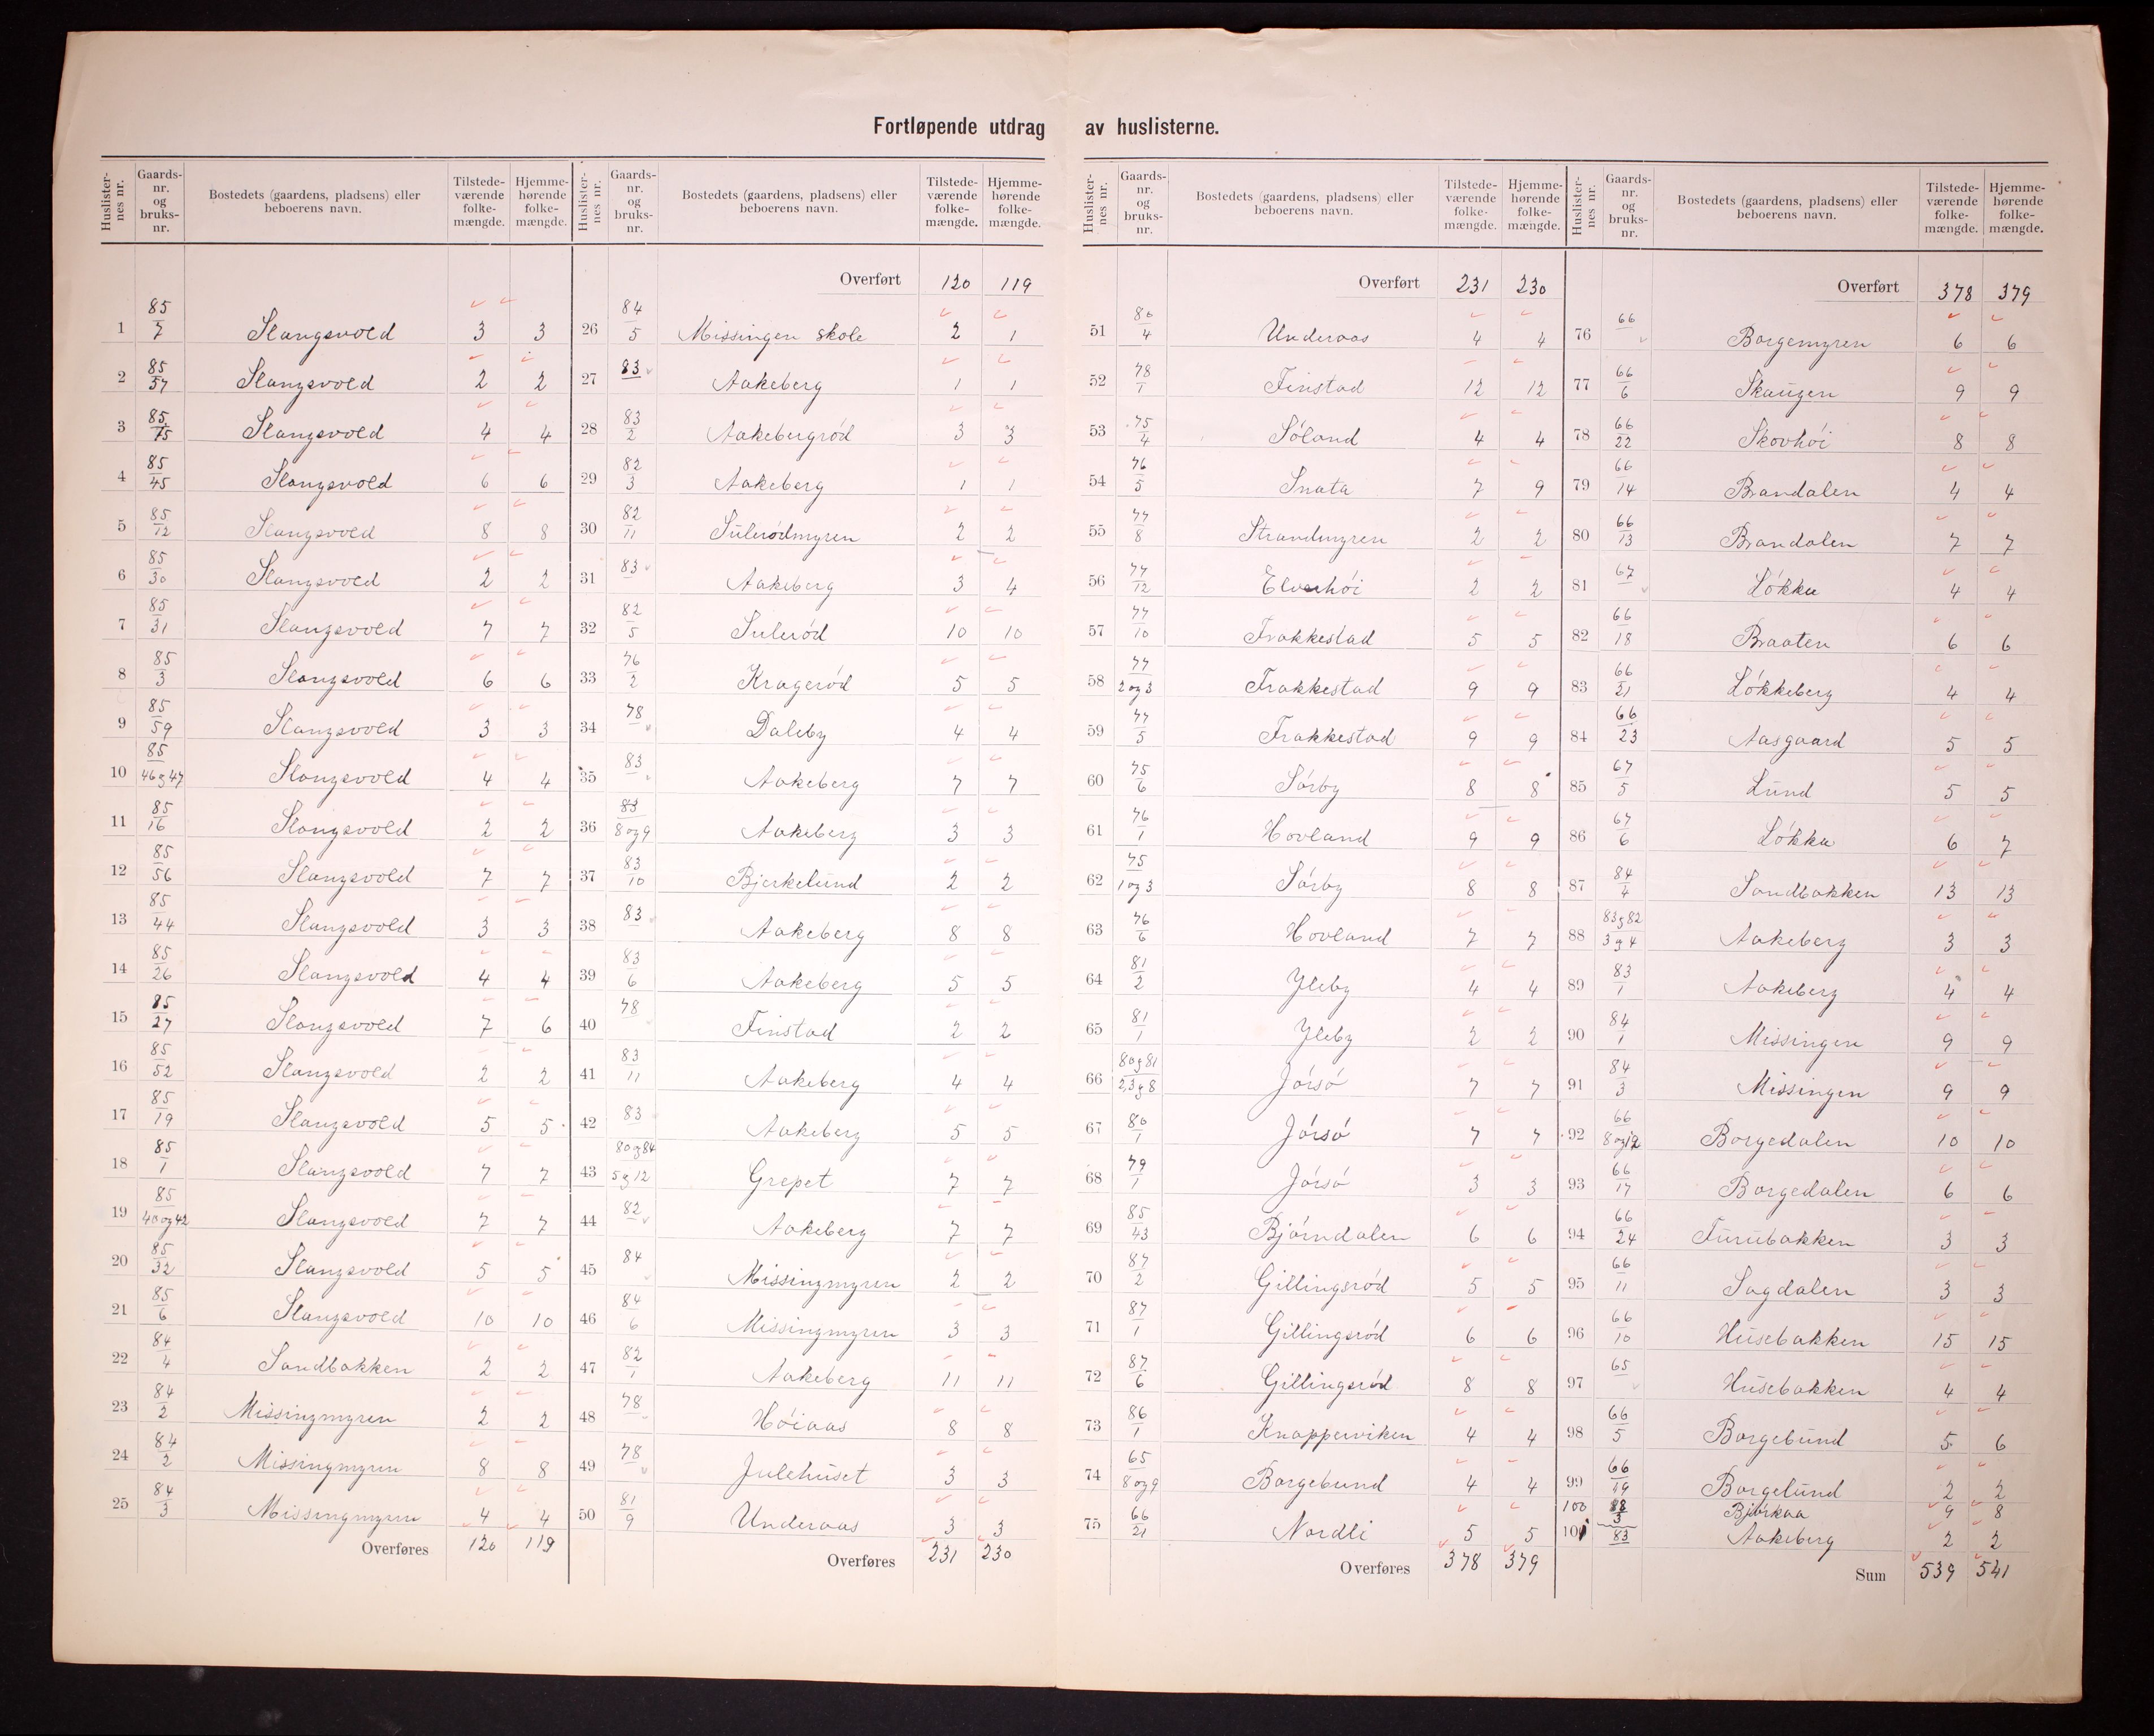 Fortløpende utdrag av huslisterne.
Huslisternes nr. Gaards-nr. og bruks-nr. Bostedets (gaardens, pladsens) eller beboerens navn. Tilstede-værende folke-mængde. Hjemme-hørende folke-mængde.
1 85/7 Slangsvold 3 3
2 85/57 Slangsvold 2 2
3 85/75 Slangsvold 4 4
4 85/45 Slangsvold 6 6
5 85/12 Slangsvold 8 8
6 85/30 Slangsvold 2 2
7 85/31 Slangsvold 7 7
8 85/3 Slangsvold 6 6
9 85/59 Slangsvold 3 3
10 85/46 g 47 Slangsvold 4 4
11 85/16 Slangsvold 2 2
12 85/56 Slangsvold 7 7
13 85/44 Slangsvold 3 3
14 85/26 Slangsvold 4 4
15 85/27 Slangsvold 7 6
16 85/52 Slangsvold 2 2
17 85/19 Slangsvold 5 5
18 85/1 Slangsvold 7 7
19 85/40 og 42 Slangsvold 7 7
20 85/32 Slangsvold 5 5
21 85/6 Slangsvold 10 10
22 84/4 Sandbakken 2 2
23 84/2 Missingmyren 2 2
24 84/2 Missingmyren 8 8
25 84/3 Missingmyren 4 4
Overføres 120 119
Huslisternes nr. Gaards-nr. og bruks-nr. Bostedets (gaardens, pladsens) eller beboerens navn. Tilstede-værende folke-mængde. Hjemme-hørende folke-mængde.
Overført 120 119
26 84/5 Missingen skole 2 1
27 83 Aakeberg 1 1
28 83/2 Aakebergrød 3 3
29 82/3 Aakeberg 1 1
30 82/11 Sulerødmyren 2 2
31 83 Aakeberg 3 4
32 82/5 Sulerød 10 10
33 76/2 Kragerød 5 5
34 78 Daleby 4 4
35 83 Aakeberg 7 7
36 83/8 og 9 Aakeberg 3 3
37 83/10 Bjerkelund 2 2
38 83 Aakeberg 8 8
39 83/6 Aakeberg 5 5
40 78 Finstad 2 2
41 83/11 Aakeberg 4 4
42 83 Aakeberg 5 5
43 80 og 84/5 g 12 Grepet 7 7
44 82 Aakeberg 7 7
45 84 Missingmyren 2 2
46 84/6 Missingmyren 3 3
47 82/1 Aakeberg 11 11
48 78 Høiaas 8 8
49 78 Julehuset 3 3
50 81/9 Underaas 3 3
Overføres 231 230
Huslisternes nr. Gaards-nr. og bruks-nr. Bostedets (gaardens, pladsens) eller beboerens navn. Tilstede-værende folke-mængde. Hjemme-hørende folke-mængde.
Overført 231 230
51 80/4 Underaas 4 4
52 78/1 Finstad 12 12
53 75/4 Søland 4 4
54 76/5 Snata 7 9
55 77/8 Strandmyren 2 2
56 77/12 Elvehøi 2 2
57 77/10 Frakkestad 5 5
58 77/2 og 3 Frakkestad 9 9
59 77/5 Frakkestad 9 9
60 75/6 Sørby 8 8
61 76/1 Hovland 9 9
62 75/1 og 3 Sørby 8 8
63 76/6 Hovland 7 7
64 81/2 Yleby 4 4
65 81/1 Yleby 2 2
66 80 g 81/2,3 g 8 Jørsø 7 7
67 80/1 Jørsø 7 7
68 79/1 Jørsø 3 3
69 85/43 Bjørndalen 6 6
70 87/2 Gillingsrød 5 5
71 87/1 Gillingsrød 6 6
72 87/6 Gillingsrød 8 8
73 86/1 Knapperviken 4 4
74 65/8 og 9 Borgebund 4 4
75 66/21 Nordli 5 5
Overføres 378 379
Huslisternes nr. Gaards-nr. og bruks-nr. Bostedets (gaardens, pladsens) eller beboerens navn. Tilstede-værende folke-mængde. Hjemme-hørende folke-mængde.
Overført 378 379
76 66 Borgemyren 6 6
77 66/6 Skaugen 9 9
78 66/22 Skovhøi 8 8
79 66/14 Brandalen 4 4
80 66/13 Brandalen 7 7
81 67 Løkka 4 4
82 66/18 Braaten 6 6
83 66/21 Løkkeberg 4 4
84 66/23 Aasgaard 5 5
85 67/5 Lund 5 5
86 67/6 Løkka 6 7
87 84/4 Sandbakken 13 13
88 83 g 82/3 g 4 Aakeberg 3 3
89 83/1 Aakeberg 4 4
90 84/1 Missingen 9 9
91 84/3 Missingen 9 9
92 66/8 og 12 Borgedalen 10 10
93 66/17 Borgedalen 6 6
94 66/24 Furubakken 3 3
95 66/11 Sagdalen 3 3
96 66/10 Husebakken 15 15
97 65 Husebakken 4 4
98 66/5 Borgebund 5 6
99 66/19 Borgelund 2 2
100 88/3 Bjørkaa 9 8
101 83 Aakeberg 2 2
Sum 539 541